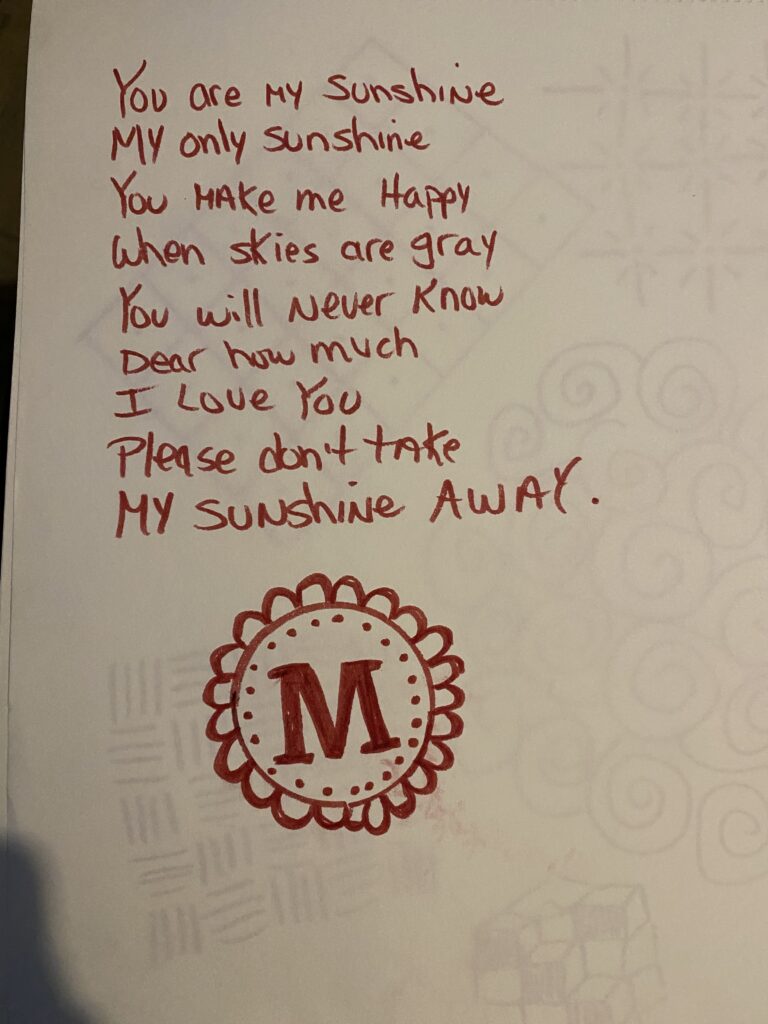 You are My Sunshine
MY only sunshine
You MAKe me Happy
When skies are gray
You will Never Know
Dear how much
I Love You
Please don't tAke
MY SUNshiNe AWAY.
M